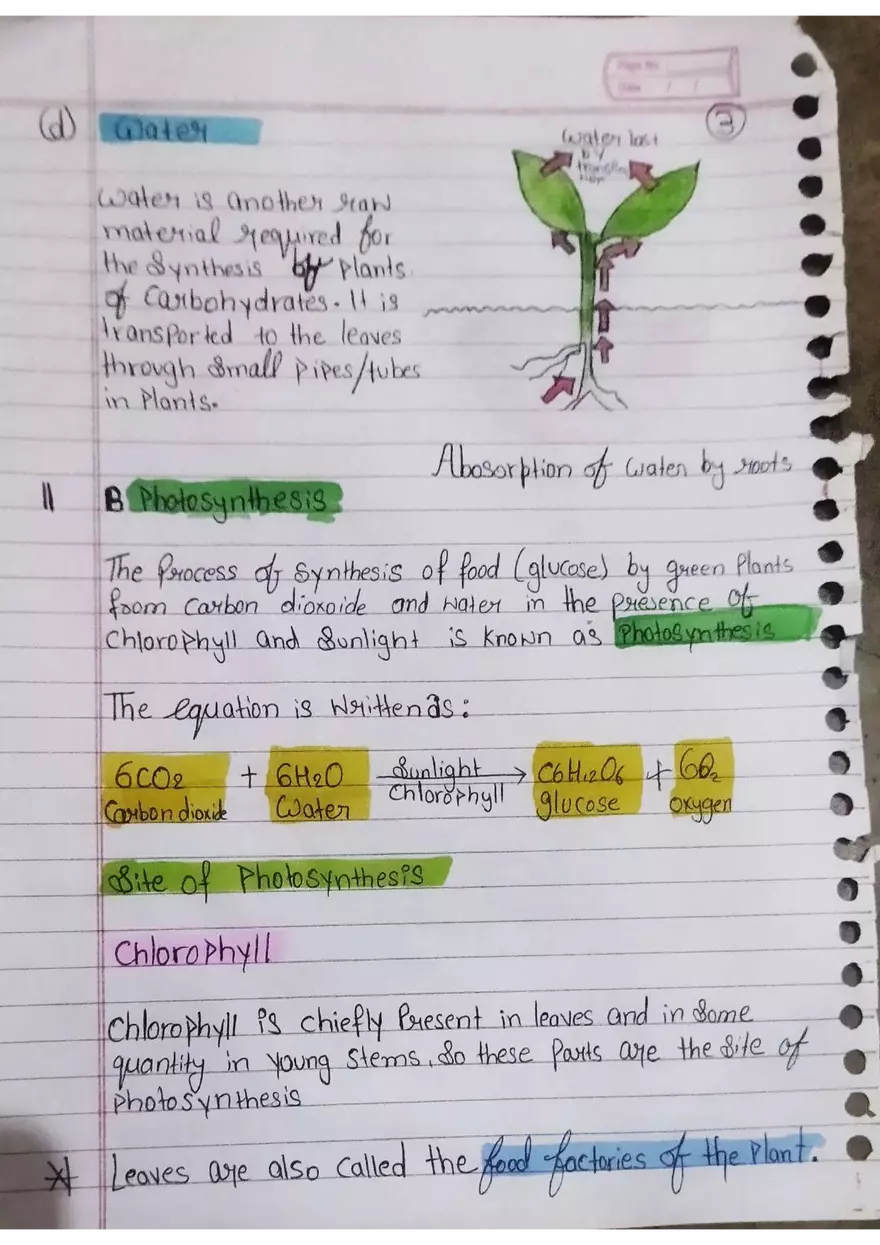 Page No.
Date / /
3
(d) Water
Water lost
by
transpira
tion
Water is another raw
material required for
the synthesis by plants
of Carbohydrates. It is
transported to the leaves
through small pipes/tubes
in plants.
Abosorption of water by roots
11 B Photosynthesis
The Process of synthesis of food (glucose) by green Plants
from Carbon dioxoide and water in the presence of
Chlorophyll and Sunlight is known as Photosynthesis
The equation is written as:
6CO2 + 6H2O Sunlight → C6H12O6 + 6O2
Carbon dioxide Water Chlorophyll glucose oxygen
Site of Photosynthesis
Chlorophyll
Chlorophyll is chiefly Present in leaves and in some
quantity in young stems. So these parts are the site of
photosynthesis
* Leaves are also called the food factories of the Plant.